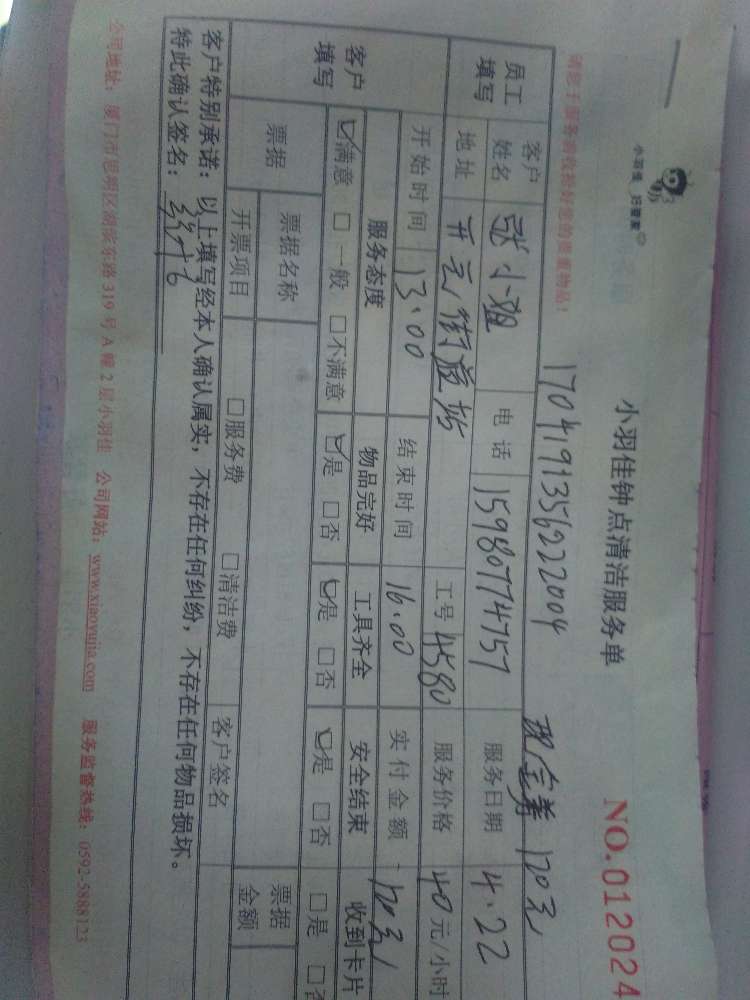 小羽佳 好管家
小羽佳钟点清洁服务单
NO.012024
请您于服务前收拾好您的贵重物品!
170419135622004 现金券120元
员工填写 客户姓名 张小姐 电话 15980774757 服务日期 4.22
地址 开元街道 工号 4580 服务价格 40元/小时
开始时间 13.00 结束时间 16.00 实付金额 120元
客户填写 服务态度 物品完好 工具齐全 安全结束 收到卡片
☑满意 □一般 □不满意 ☑是 □否 ☑是 □否 ☑是 □否 □是 □否
票据 票据名称 票据金额
开票项目 □服务费 □清洁费 客户签名
客户特别承诺:以上填写经本人确认属实,不存在任何纠纷,不存在任何物品损坏。
特此确认签名:
公司地址:厦门市思明区湖滨东路319号A幢2层小羽佳 公司网站:www.xiaoyujia.com 服务监督热线:0592-5888123